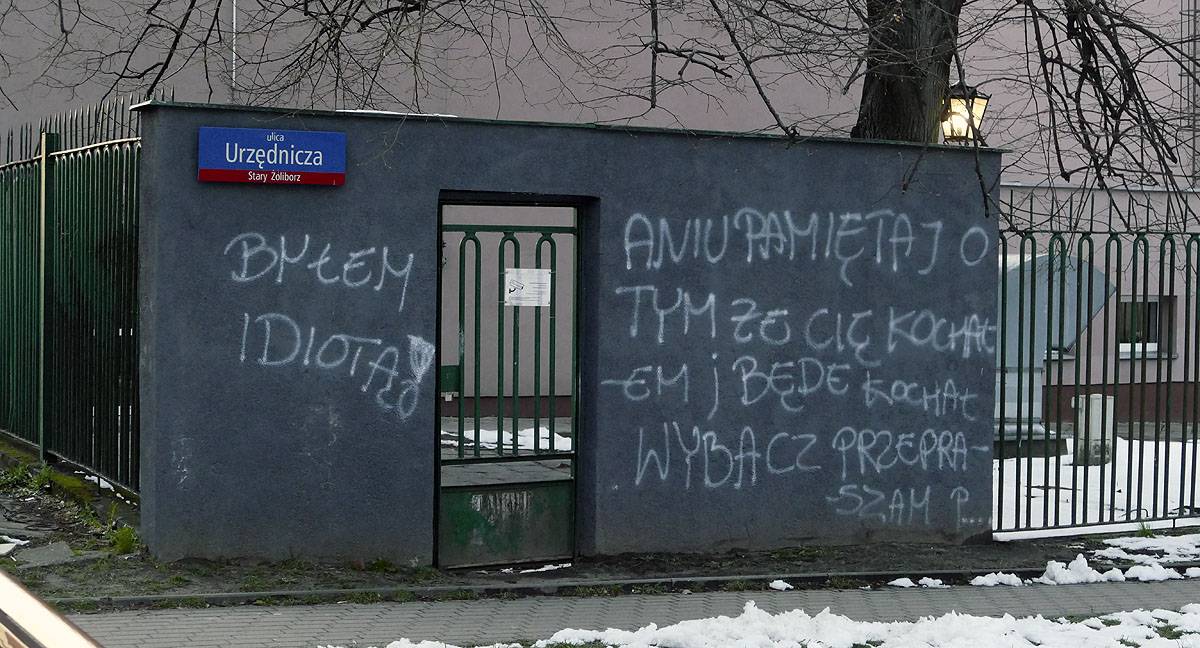 ulica
Urzędnicza
Stary Żoliborz
BYŁEM
IDIOTĄ
ANIU PAMIĘTAJ O
TYM ŻE CIĘ KOCHAŁ
-EM j BĘDE KOCHAŁ
WYBACZ PRZEPRA-
-SZAM P...